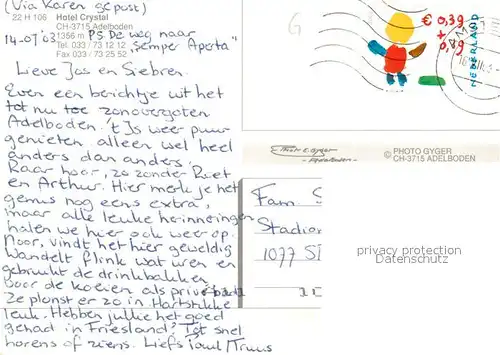 (Via Karen gepost)
22 H 106 Hotel Crystal
CH-3715 Adelboden
1356 m
Tel. 033 / 73 12 12
Fax 033 / 73 25 52
14-07-'03 P.S. De weg naar
"Semper Aperta"
Lieve Jos en Siebren.
Even een berichtje uit het
tot nu toe zonovergoten
Adelboden. 't Is weer puur
genieten, alleen wel heel
anders dan anders.
Raar hoor, zo zonder Piet
en Arthur. Hier merk je het
gemis nog eens extra,
maar alle leuke herinneringen
halen we hier ook weer op.
Noor, vindt het hier geweldig
Wandelt flink wat uren en
gebruikt de drinkbakken
voor de koeien als privé bad
Ze plonst er zo in Hartstikke
leuk. Hebben jullie het goed
gehad in Friesland? Tot snel
horens of ziens. Liefs Paul/Truus
€ 0,39
+ 0,19
NEDERLAND
Adelboden-
© PHOTO GYGER
CH-3715 ADELBODEN
Fam. S
Stadion
1077 S
privacy protection
Datenschutz